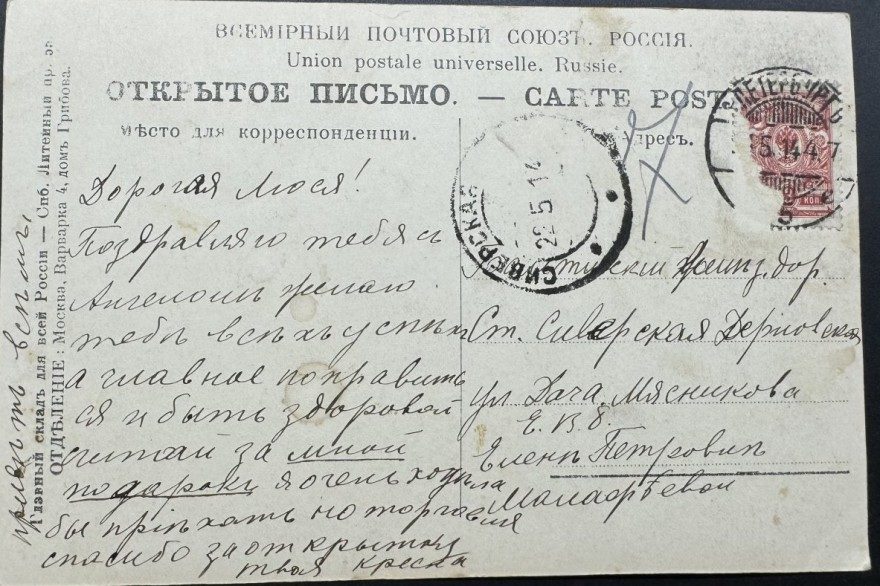 ВСЕМІРНЫЙ ПОЧТОВЫЙ СОЮЗЪ. РОССІЯ.
Union postale universelle. Russie.
ОТКРЫТОЕ ПИСЬМО. — CARTE POST
Мѣсто для корреспонденціи.
Адресъ.
Главный складъ для всей России — Спб. Литейный пр. 55
ОТДѢЛЕНІЕ: Москва, Варварка 4, домъ Грибова.
Дорогая Люся!
Поздравляю тебя съ
Ангеломъ желаю
тебѣ всѣхъ успѣх
а главное поправить
ся и быть здоровой
считай за мной
подарокъ я очень хотѣла
бы пріѣхать но торговля
спасибо за открытку
твоя креска
привѣтъ всѣмъ,
СИВЕРСКАЯ
22 5 14
ПЕТЕРБУРГЪ
5 14 4
Ст. Сиверская Дерновская
ул. Дача. Мясникова
Е. В. Б.
Еленѣ Петровнѣ